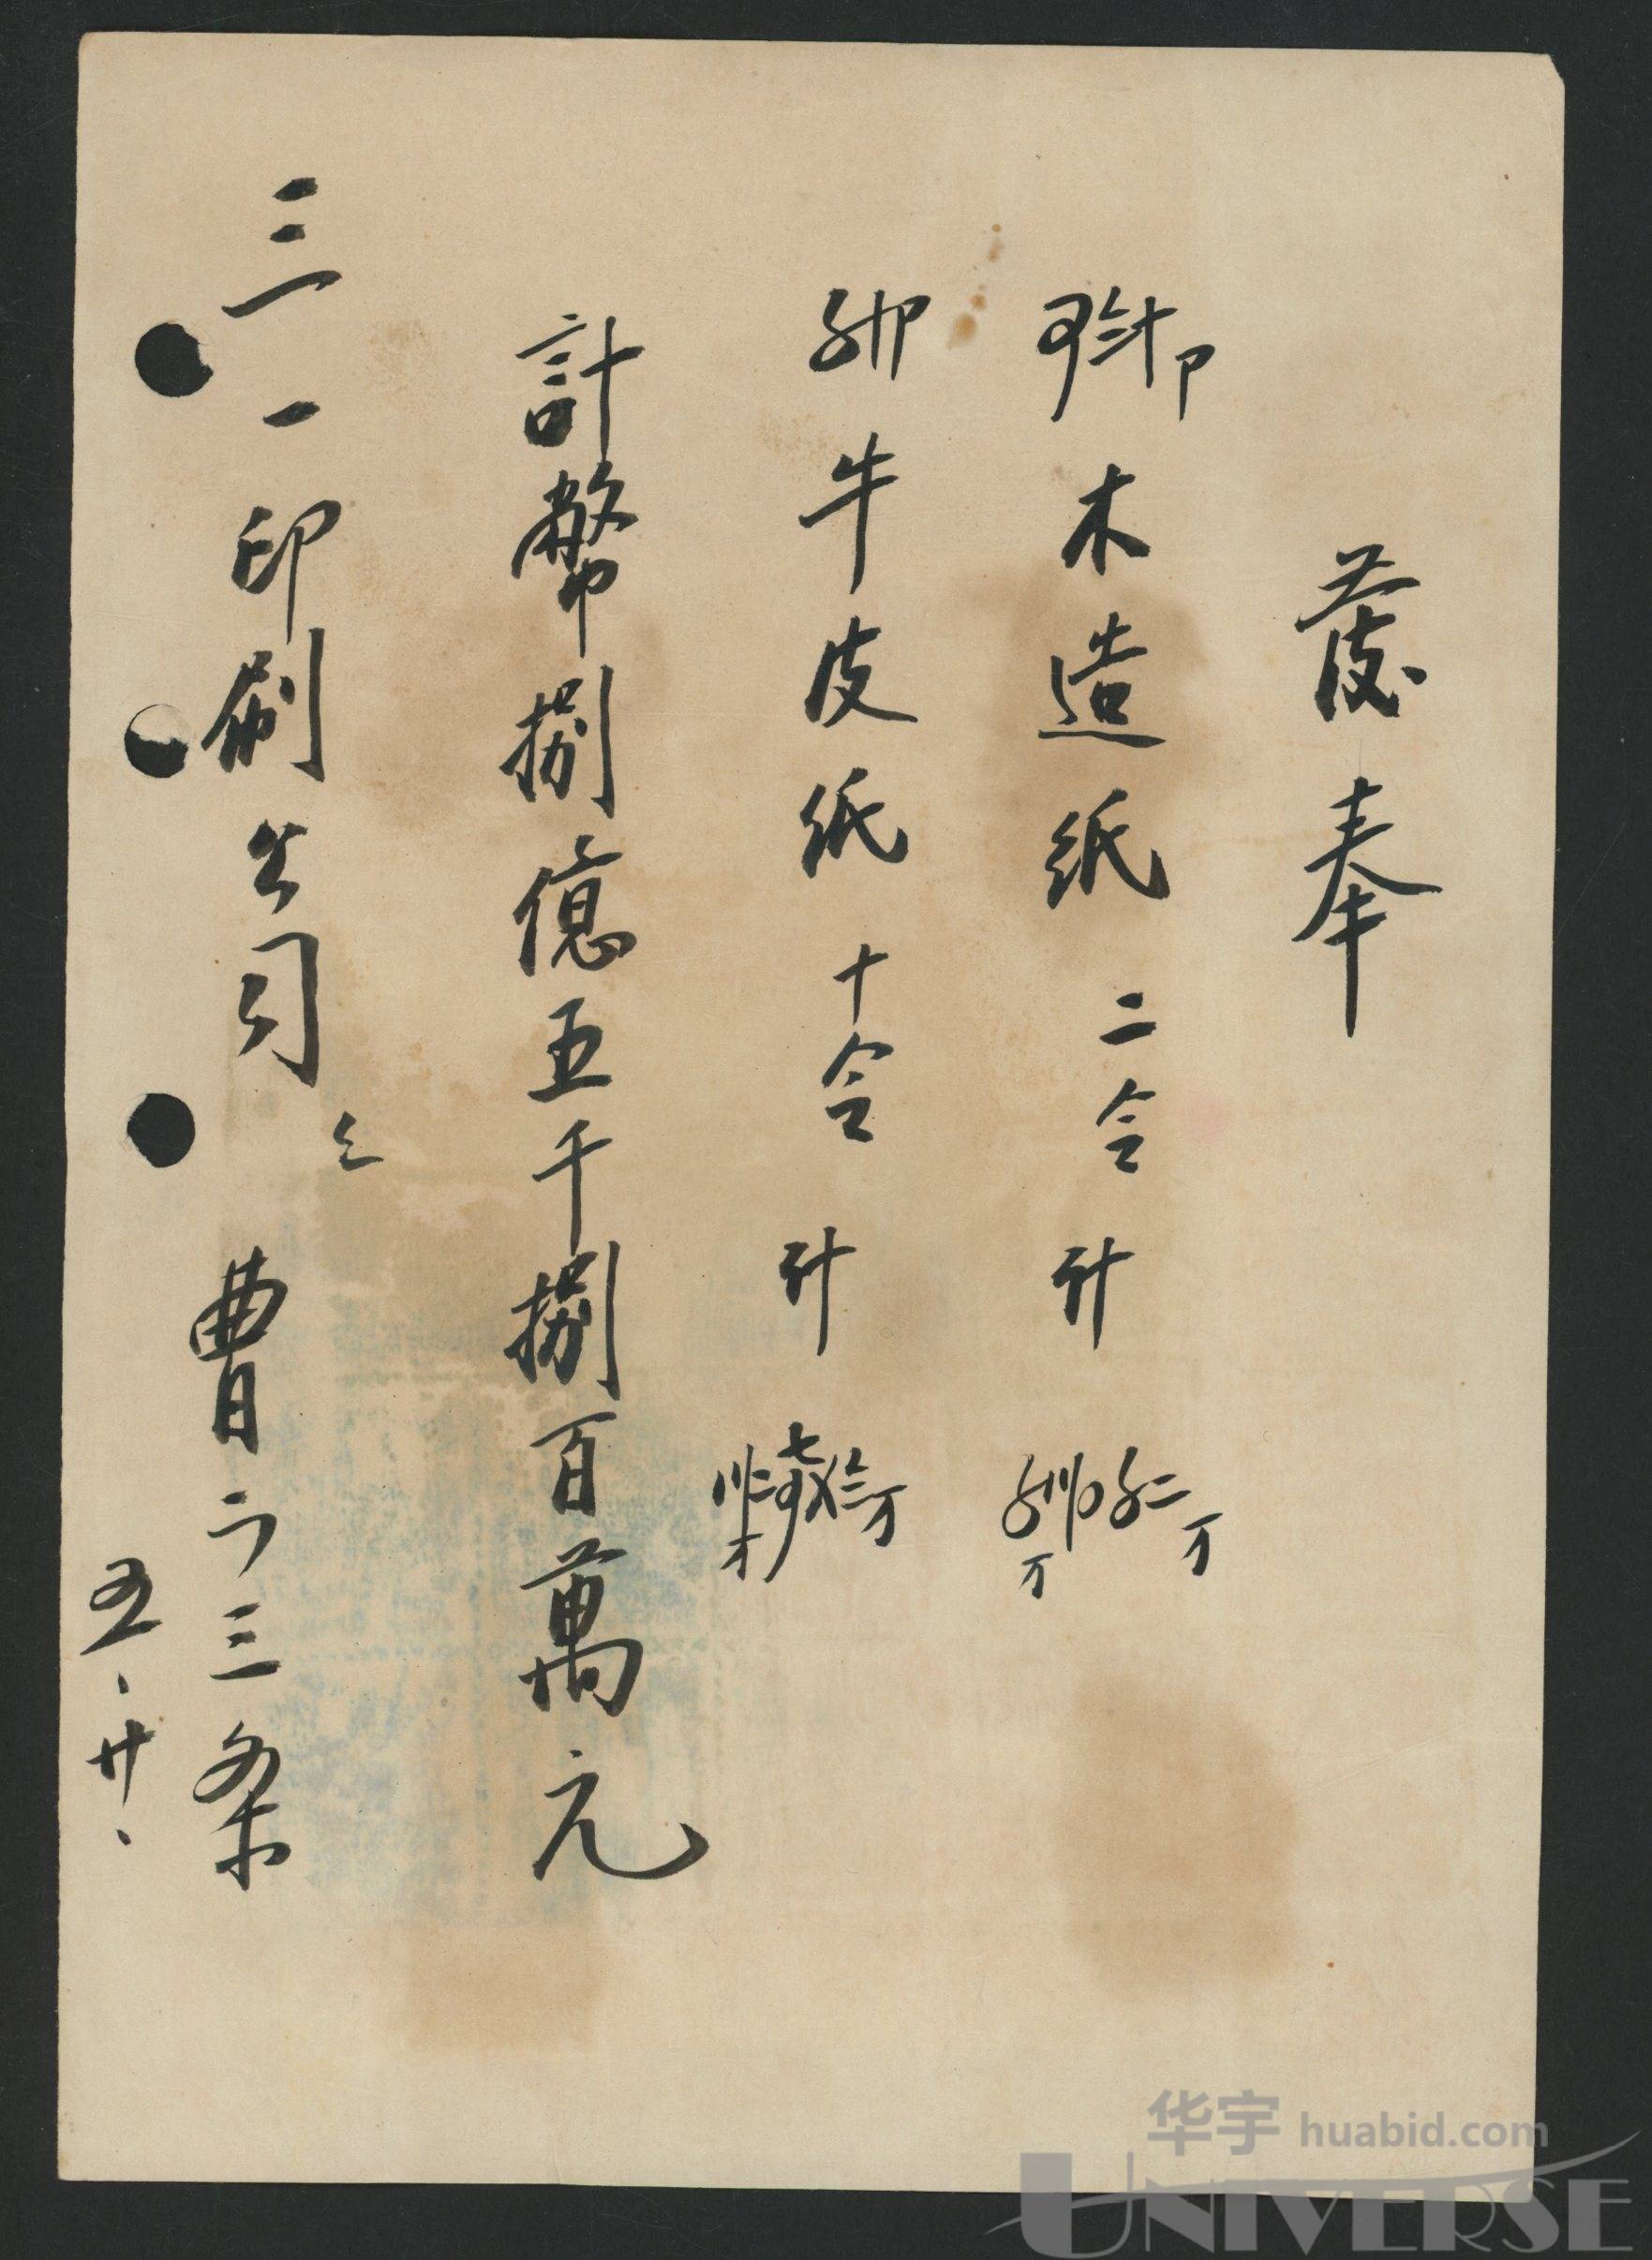 發奉
木造纸 二令 计
牛皮纸 十令 计
計幣捌億五千捌百萬元
三一印刷公司 曹六三条
五、廿、
华宇 huabid.com
UNIVERSE